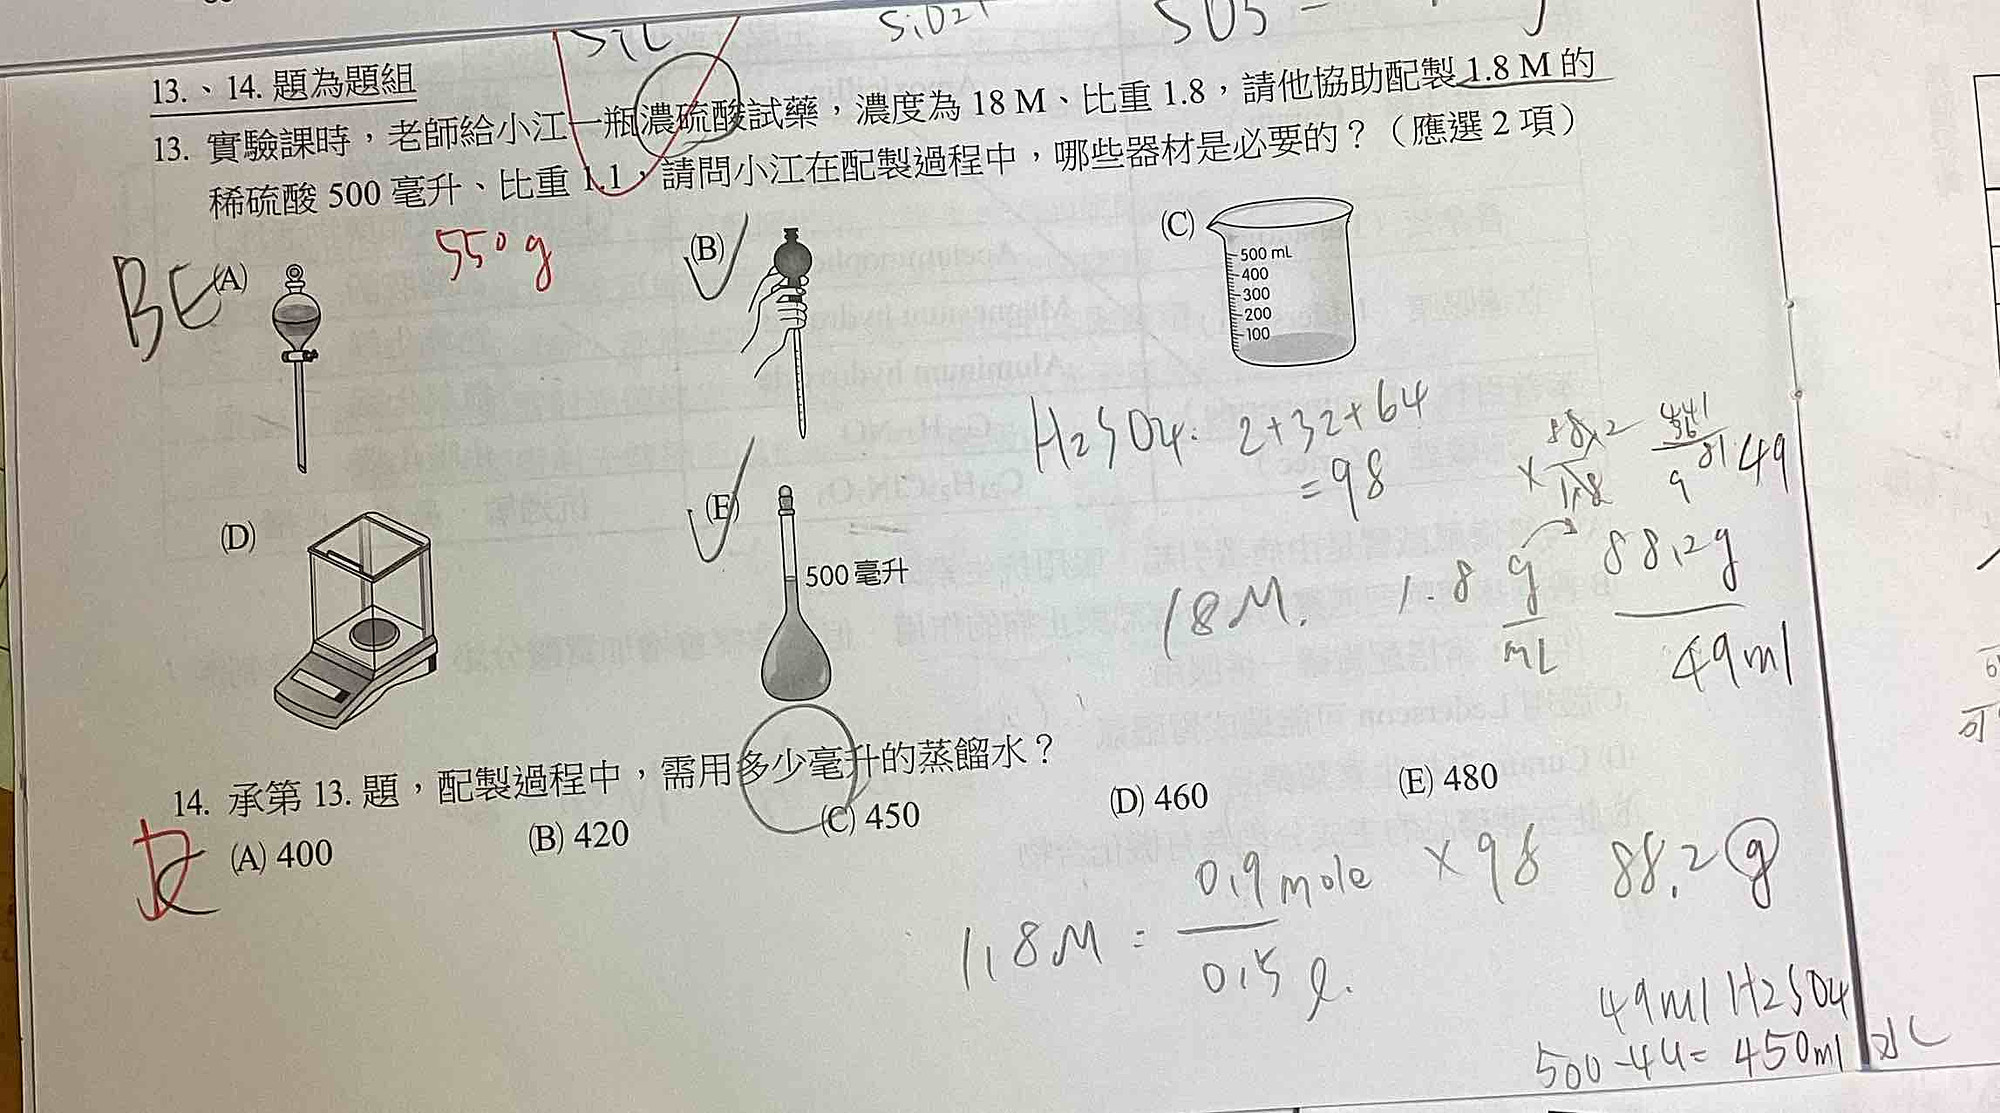 SiO2
SO3 =
13.、14. 題為題組
13. 實驗課時，老師給小江一瓶濃硫酸試藥，濃度為 18 M、比重 1.8，請他協助配製 1.8 M 的
稀硫酸 500 毫升、比重 1.1，請問小江在配製過程中，哪些器材是必要的？（應選 2 項）
550 g
BE
(A)
(B)
(C)
500 mL
400
300
200
100
(D)
(E)
500 毫升
H2SO4: 2+32+64
=98
18M. 1.8 g/mL
88.2g
49ml
14. 承第 13. 題，配製過程中，需用多少毫升的蒸餾水？
(A) 400
(B) 420
(C) 450
(D) 460
(E) 480
1.8M = 0.9 mole / 0.5 l. × 98 88.2 g
49ml H2SO4
500-49= 450ml 水